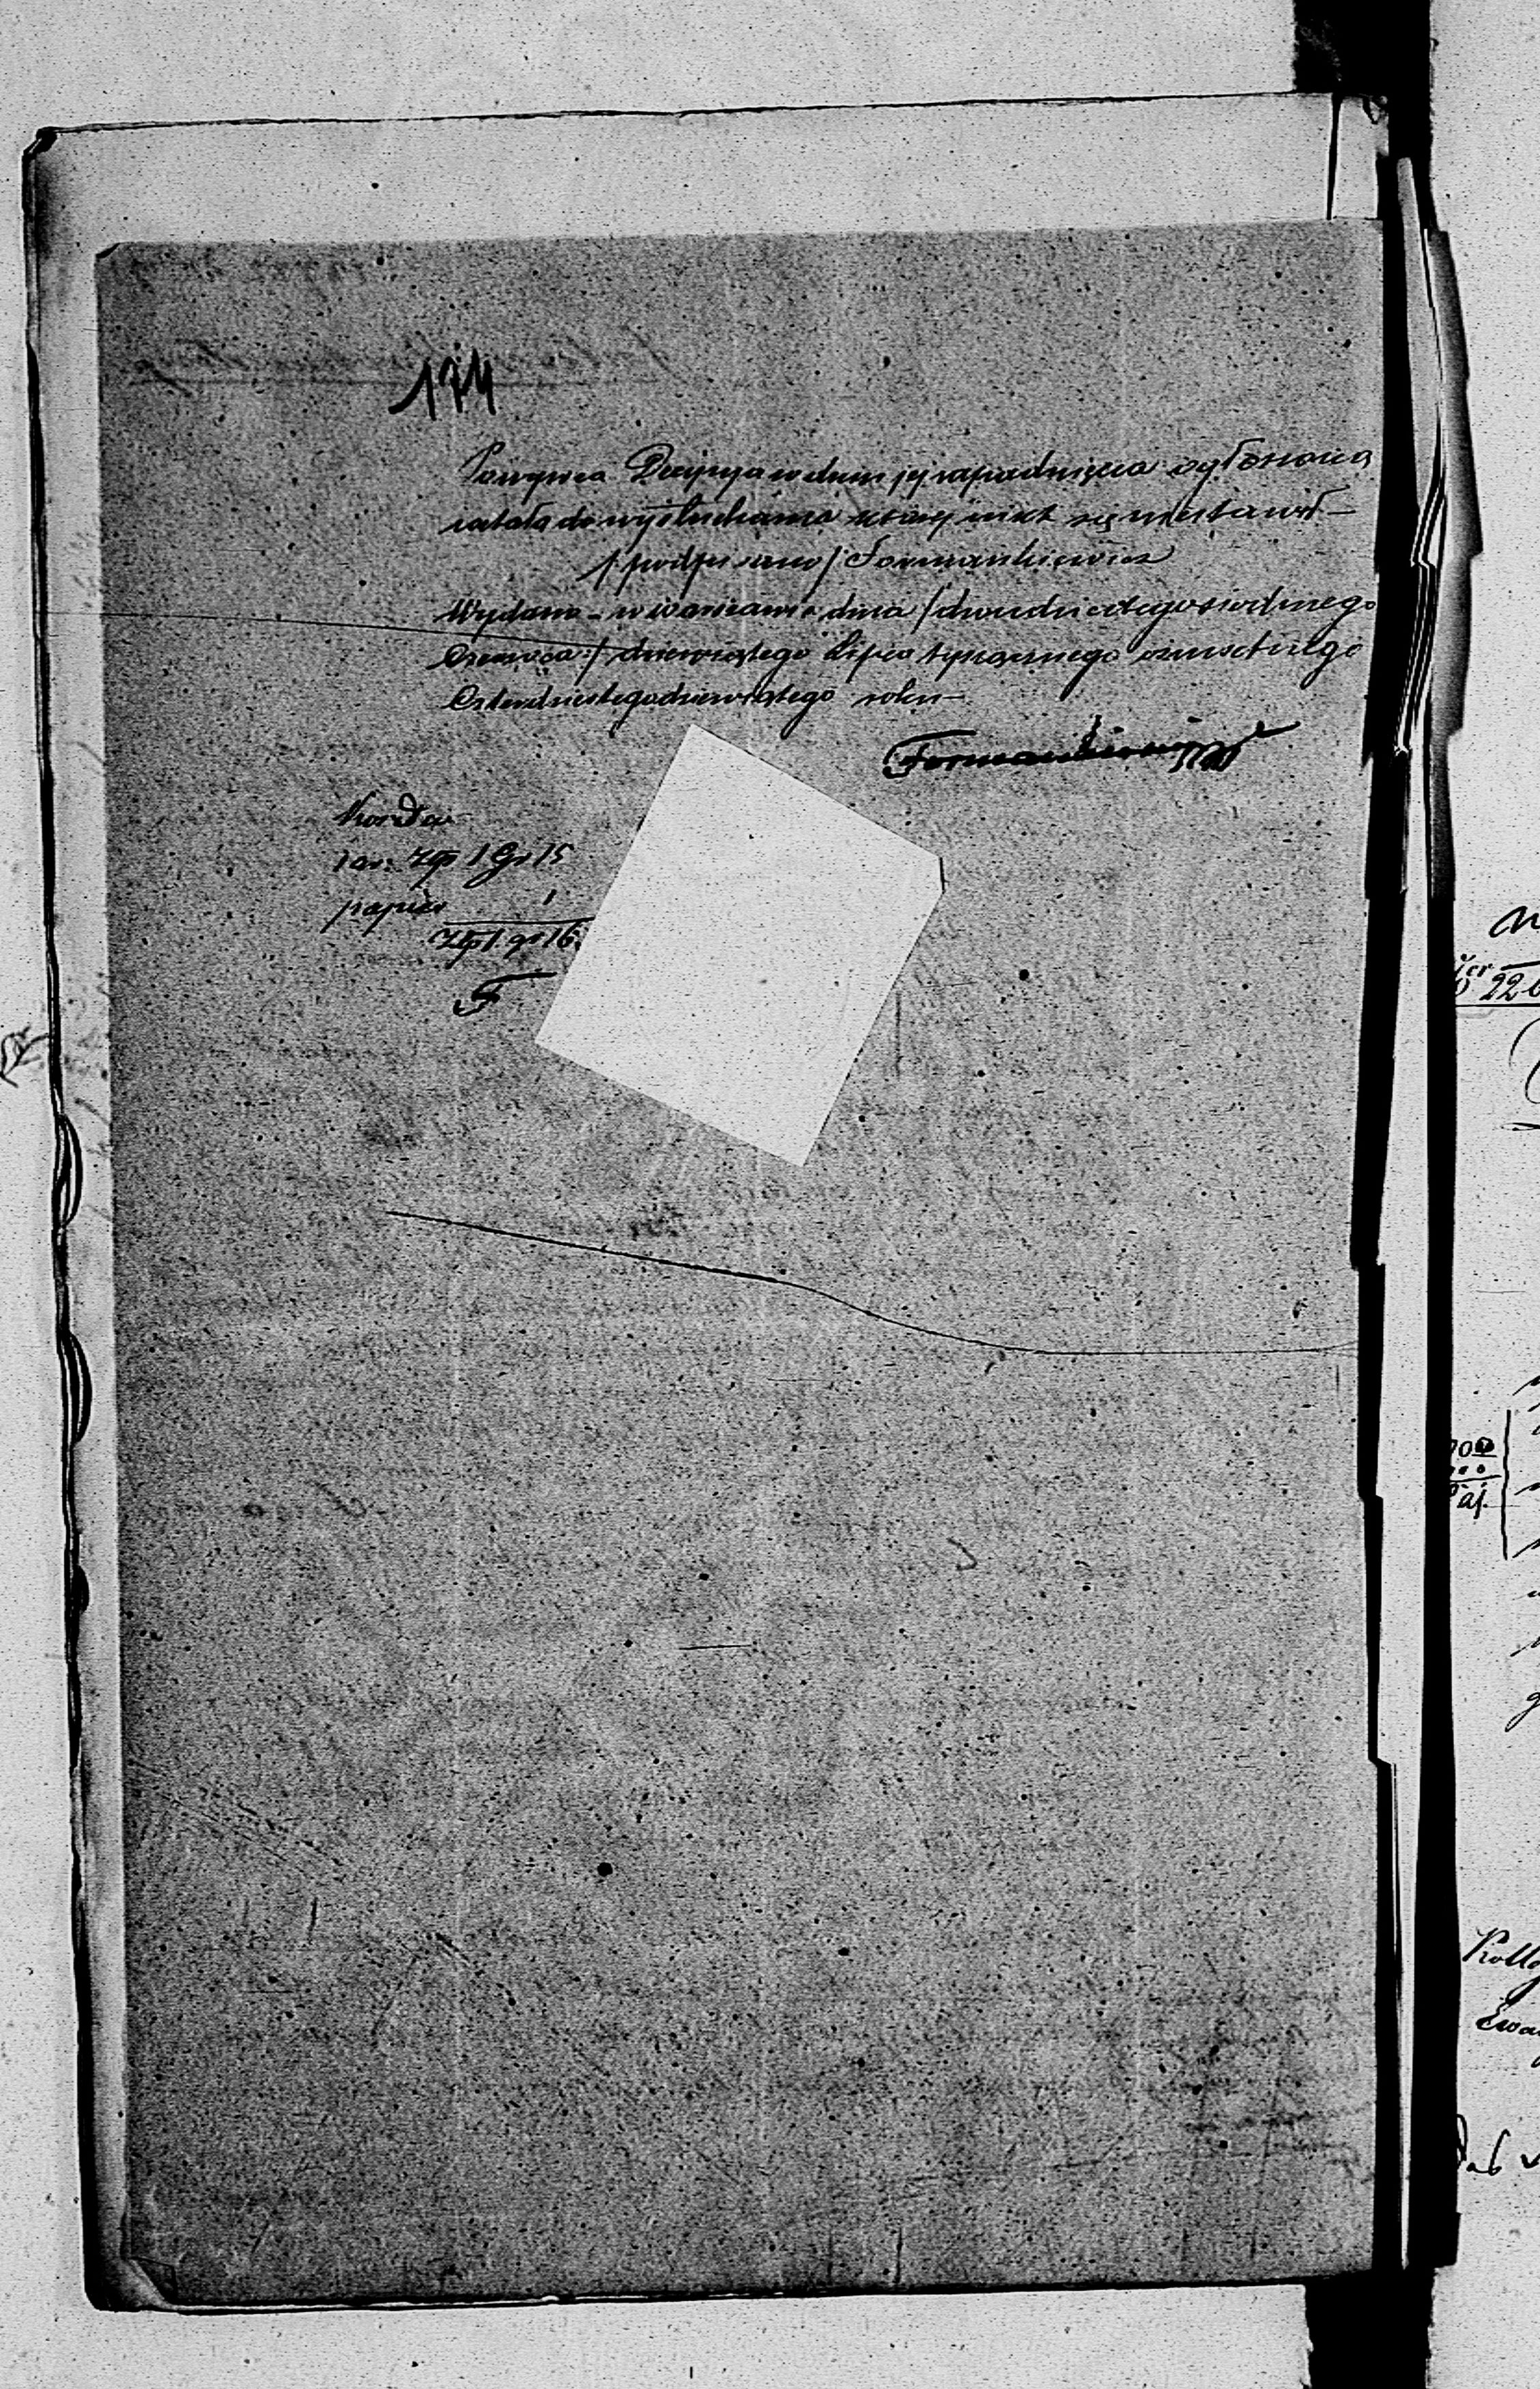 174
Powyższa Decyzya w dniu jej zapadnięcia ogłoszoną
została do wysłuchania której nikt się nie stawił —
/podpisano/ Formankiewicz
Wydano w Warszawie dnia /dwudziestego siódmego
Czerwca/ dziewiątego Lipca tysiącznego ośmsetnego
Czterdziestego dziewiątego roku —
Formankiewicz
Koszta
Złp 1 Gr 15
papier 1
Złp 1 gr 16.
F
22